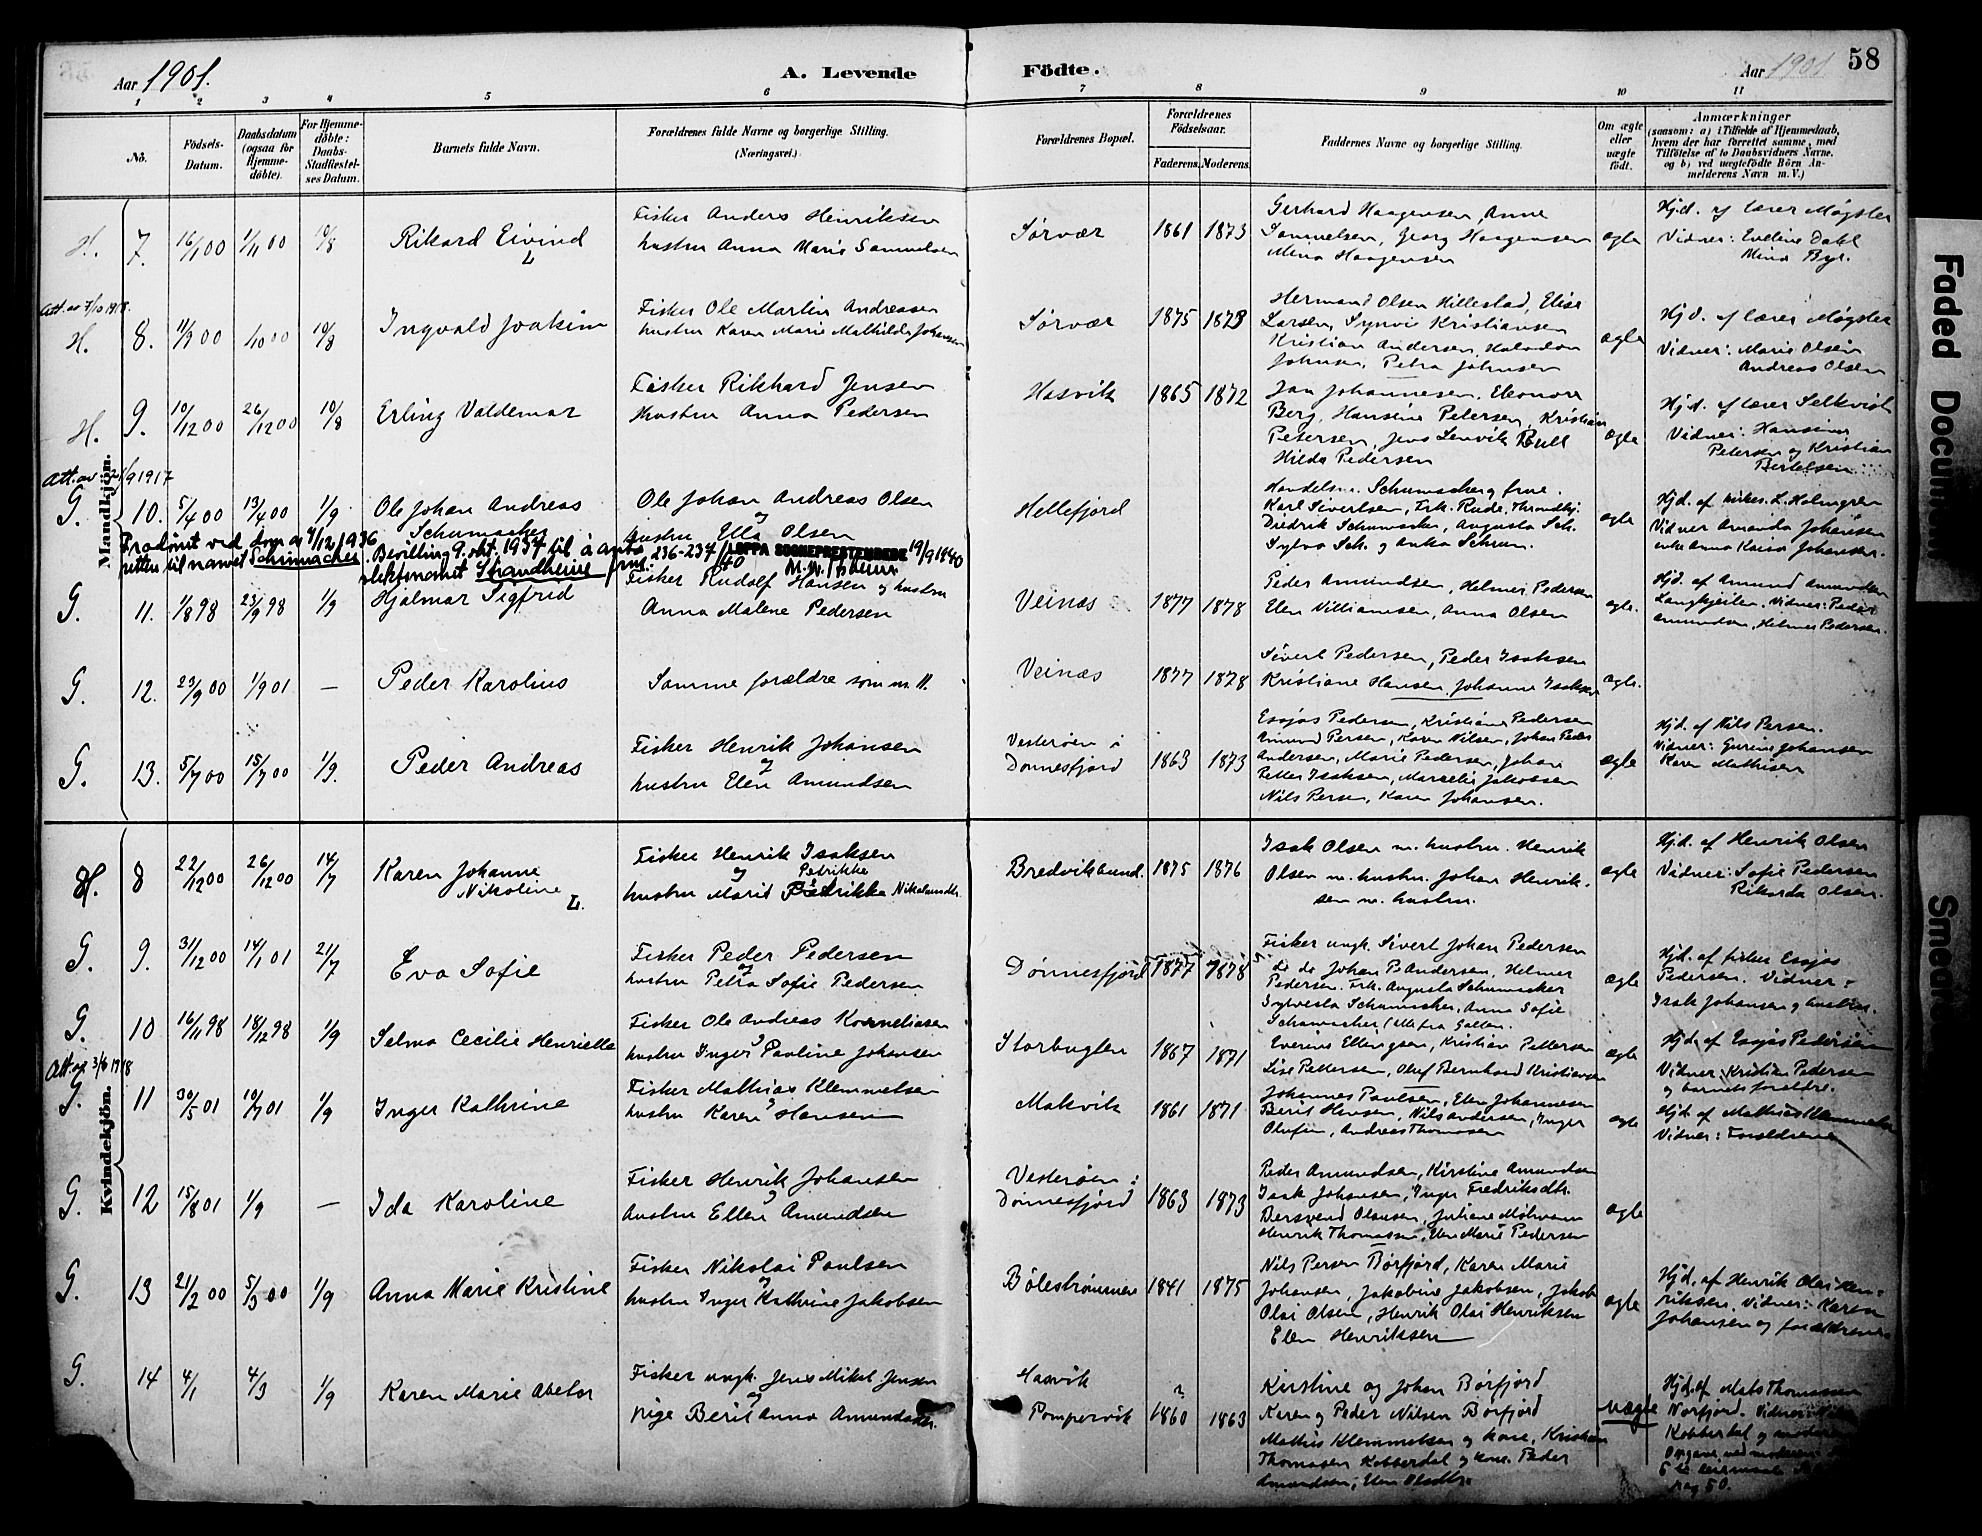 Aar 1901.
A. Levende
Födte.
Aar 1901
58
1 2 3 4 5 6 7 8 9 10 11
No.
Födsels-Datum.
Daabsdatum (ogsaa for Hjemme-döbte).
For Hjemme-döbte: Daabs-Stadfæstel-ses Datum.
Barnets fulde Navn.
Forældrenes fulde Navne og borgerlige Stilling. (Næringsvei.)
Forældrenes Bopæl.
Forældrenes Födselsaar.
Faderens. Moderens.
Faddernes Navne og borgerlige Stilling.
Om ægte eller uægte födt.
Anmærkninger
(saasom: a) i Tilfælde af Hjemmedaab, hvem der har forrettet samme, med Tilföielse af to Daabsvidners Navne, og b) ved uægtefödte Börn Anmelderens Navn m. V.)
Mandkjön.
H. 7. 16/1 00 1/11 00 10/8 Rikard Eivind
Fisker Anders Henriksen
hustru Anna Marie Samuelsen
Sørvær 1861 1873
Gerhard Haagensen, Anne
Samuelsen, Georg Haagensen
Mina Haagensen
ægte
Hjd. af lærer Møgster
Vidner: Eveline Dahl
Mina Byr.
Att. av 7/10 1918.
H. 8. 11/9 00 4/10 00 10/8 Ingvald Joakim
Fisker Ole Martin Andreassen
hustru Karen Marie Mathilde Johansen
Sørvær 1875 1873
Hermand Olsen Hillestad, Elise
Larsen, Synvie Kristiansen
Kristian Andersen, Halvdan
Johnsen, Petra Johnsen
ægte
Hjd. af lærer Møgster
Vidner: Marie Olsen
Andreas Olsen
H. 9. 10/12 00 26/12 00 10/8 Erling Valdemar
Fisker Rikhard Jensen
Hustru Anna Pedersen
Hasvik 1865 1872
Jan Johannesen, Eleonore
Berg, Hansine Petersen, Kristian
Petersen, Jens Lenvik Bull
Hilda Pedersen
ægte
Hjd. af lærer Selkvist
Vidner: Hansine
Petersen og Kristian
Bertelsen
Att. av 21/9 1917
G. 10. 5/4 00 13/4 00 1/9 Ole Johan Andreas
Schumacher
Ole Johan Andreas Olsen
og
hustru Ulla Olsen
Hellefjord
Handelsm. Schumacher og frue.
Karl Sivertsen, Frk. Rude, Throndhj.
Diedrik Schumacker, Augusta Sch.
Sylva Sch. og Anka Schum.
ægte
Hjd. af kirkes. L. Holmgren
Vidner Amanda Johansen
enke Anna Kaisa Johansdtr.
Fradömt ved dom av 4/12 1936
retten til navnet Schumacher. Bevilling 9. okt. 1937 til å anta
slektsnavnet Strandheim
236-237/40 LOPPA SOGNEPRESTEMBEDE 19/9 1940
G. 11. 1/8 98 23/9 98 1/9 Hjalmar Sigfrid
Fisker Rudolf Hansen og hustru
Anna Malene Pedersen
Veinæs 1877 1878
Peder Amundsen, Helmer Pedersen
Elen Villiamsen, Anna Olsen
ægte.
Hjd. af Amund Amundsen
Langkjeilen. Vidner: Peder
Amundsen, Helmer Pedersen.
G. 12. 23/9 00 1/9 01 — Peder Karolius
Samme forældre som nr. 11.
Veinæs 1877 1878
Sivert Pedersen, Peder Isaksen
Kristiane Hansen, Johanne Isaksen
ægte.
G. 13. 5/7 00 15/7 00 1/9. Peder Andreas
Fisker Henrik Johansen
og
hustru Elen Amundsen
Vesterøen i
Dönnesfjord 1863 1873
Essjas Pedersen, Kristiane Pedersen
Amund Persen, Karen Nilsen, Johan Peder
Andersen, Marie Pedersen, Johan
Petter Isaksen, Marcelie Jakobsen
Nils Persen, Karen Johansen.
ægte
Hjd. af Nils Persen.
Vidner: Gurine Johansen
Karen Mathisen
Kvindekjön.
H. 8 22/12 00 26/12 00 14/7 Karen Johanne
Nikoline
Fisker Henrik Isaksen
og Petrikke
hustru Marit Pedrikka Nikolaisdtr.
Bredvikbund. 1875 1876
Isak Olsen m. hustru. Henrik
Olsen m. hustru. Johan Henrik-
sen m. hustru.
ægte
Hjd. af Henrik Olsen
Vidner: Sofie Pedersen
Rikarda Olsen.
G. 9. 31/12 00 14/1 01 21/7 Eva Sofie
Fisker Peder Pedersen
og
hustru Petra Sofie Pedersen
Dönnesfjord 1877 1878
Fisker ungk. Sivert Johan Pedersen
do do Johan P. Andersen, Helmer
Pedersen. Frk. Augusta Schumacker
Sylvesta Schumacker, Anna Sofie
Schumacker (alle fra Galten.
ægte
Hjd. af fisker Essjas
Pedersen. Vidner:
Isak Johansen og hustru.
G. 10 16/11 98 18/12 98 1/9 Selma Cecilie Henriette
Fisker Ole Andreas Korneliusen
og
hustru Inger Pauline Johansen
Storbugten 1867 1871
Everine Ellingsen, Kristian Pettersen
Lise Pettersen, Oluf Bernhard Kristiansen
ægte
Hjd. af Essjas Pedersen
Vidner Kristian Pedersen
og barnets forældre.
Att. af 3/6 1918
G. 11 30/5 01 10/7 01 1/9 Inger Kathrine
Fisker Mathias Klemmetsen
og
hustru Karen Hansen
Makvik 1861 1871
Johannes Paulsen, Elen Johannesen
Berit Hansen, Nils Andersen, Inger
Olufsen, Andreas Thomasen
ægte
Hjd. af Mathias Klemmetsen
Vidner: Forældrene
G. 12 15/8 01 1/9 — Ida Karoline
Fisker Henrik Johansen
og
hustru Ellen Amundsen
Vesterøen i
Dönnesfjord 1863 1873
Peder Amundsen, Kirstine Amundsen
Isak Johansen, Inger Fredriksdtr.
Bersvend Olausen, Juliane Mikvam
Henrik Thomassen, Elen Marie Pedersen
ægte
G. 13 21/2 00 5/3 00 1/9 Anna Marie Kristine
Fisker Nikolai Paulsen
og
hustru Inger Kathrine Jakobsen
Bölestrømmen 1841 1875
Nils Persen Børfjord, Karen Marie
Johansen, Jakobine Jakobsen, Jakob
Olai Olsen, Henrik Olai Henriksen
Elen Henriksen
ægte
Hjd. af Henrik Olai Hen-
riksen. Vidner: Karen
Johansen og forældrene
G. 14 4/1 4/3 1/9 Karen Marie Abelor
Fisker ungk. Jens Mikal Jensen
og
pige Berit Anna Amundsdtr.
Hasvik
Pompervik 1860 1863
Kirstine og Johan Børfjord
Karen og Peder Nilsen Børfjord
Mathis Klemmetsen og kone, Kristian
Thomasen Kobberdal og kone. Peder
Amundsen, Elen Olsdtr.
uægte
Hjd. af Mats Thomassen
Nordfjord. Vidner:
Kobberdal og moderen
Opgave ved moderen
5te leiermaal
pag 50.
Faded Document
Smeared